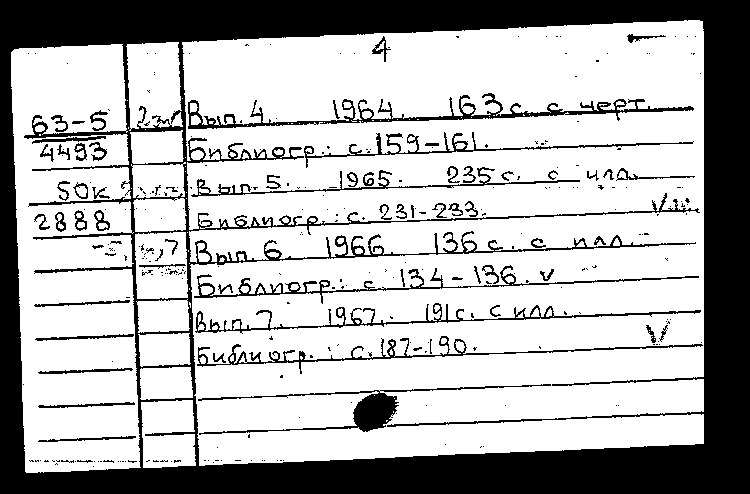 4
63-5 2экз Вып. 4. 1964. 163 с. с черт.
4493 Библиогр.: с. 159-161.
SOK Вып. 5. 1965. 235 с. с илл.
2888 Библиогр.: с. 231-233.
-5, 6,7 Вып. 6. 1966. 136 с. с илл.
Библиогр.: с 134-136. v
Вып. 7. 1967. 191 с. с илл.
Библиогр.: с. 187-190. V